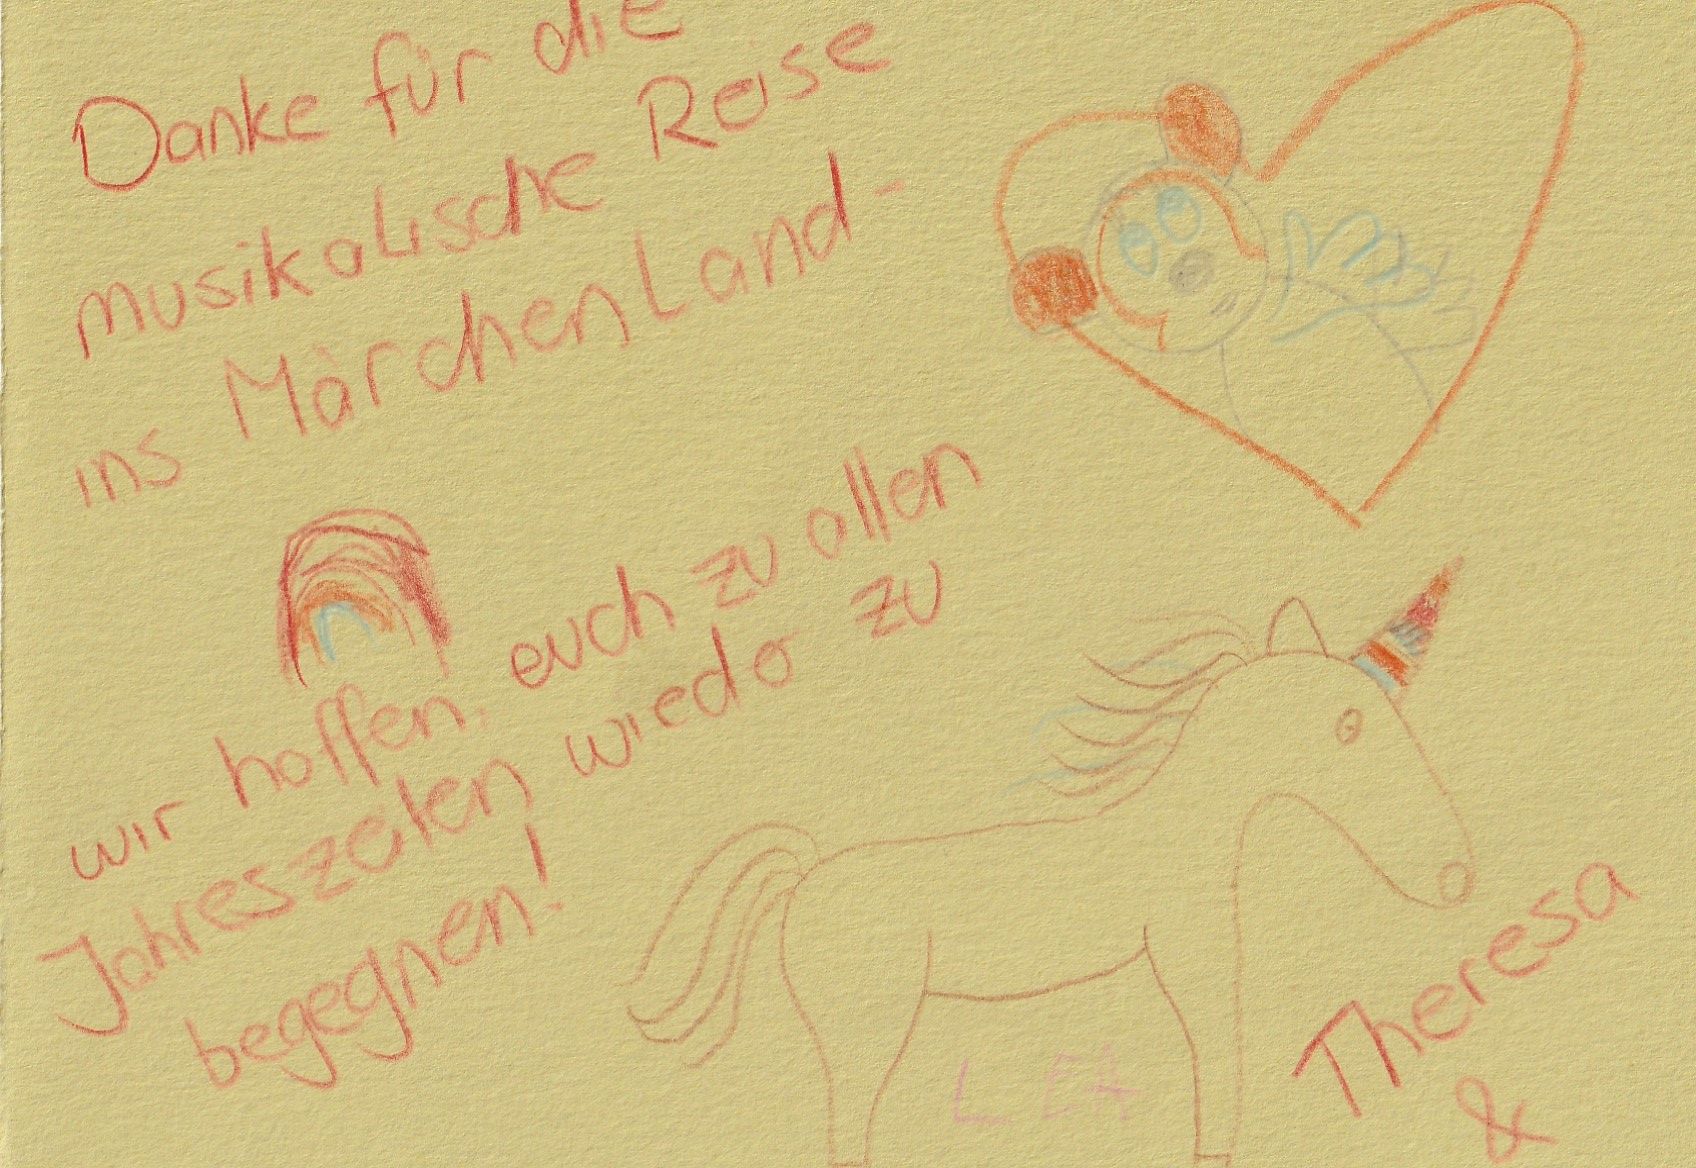 Danke für die
musikalische Reise
ins Märchenland-
wir hoffen, euch zu allen
Jahreszeiten wieder zu
begegnen!
LEA
Theresa
&